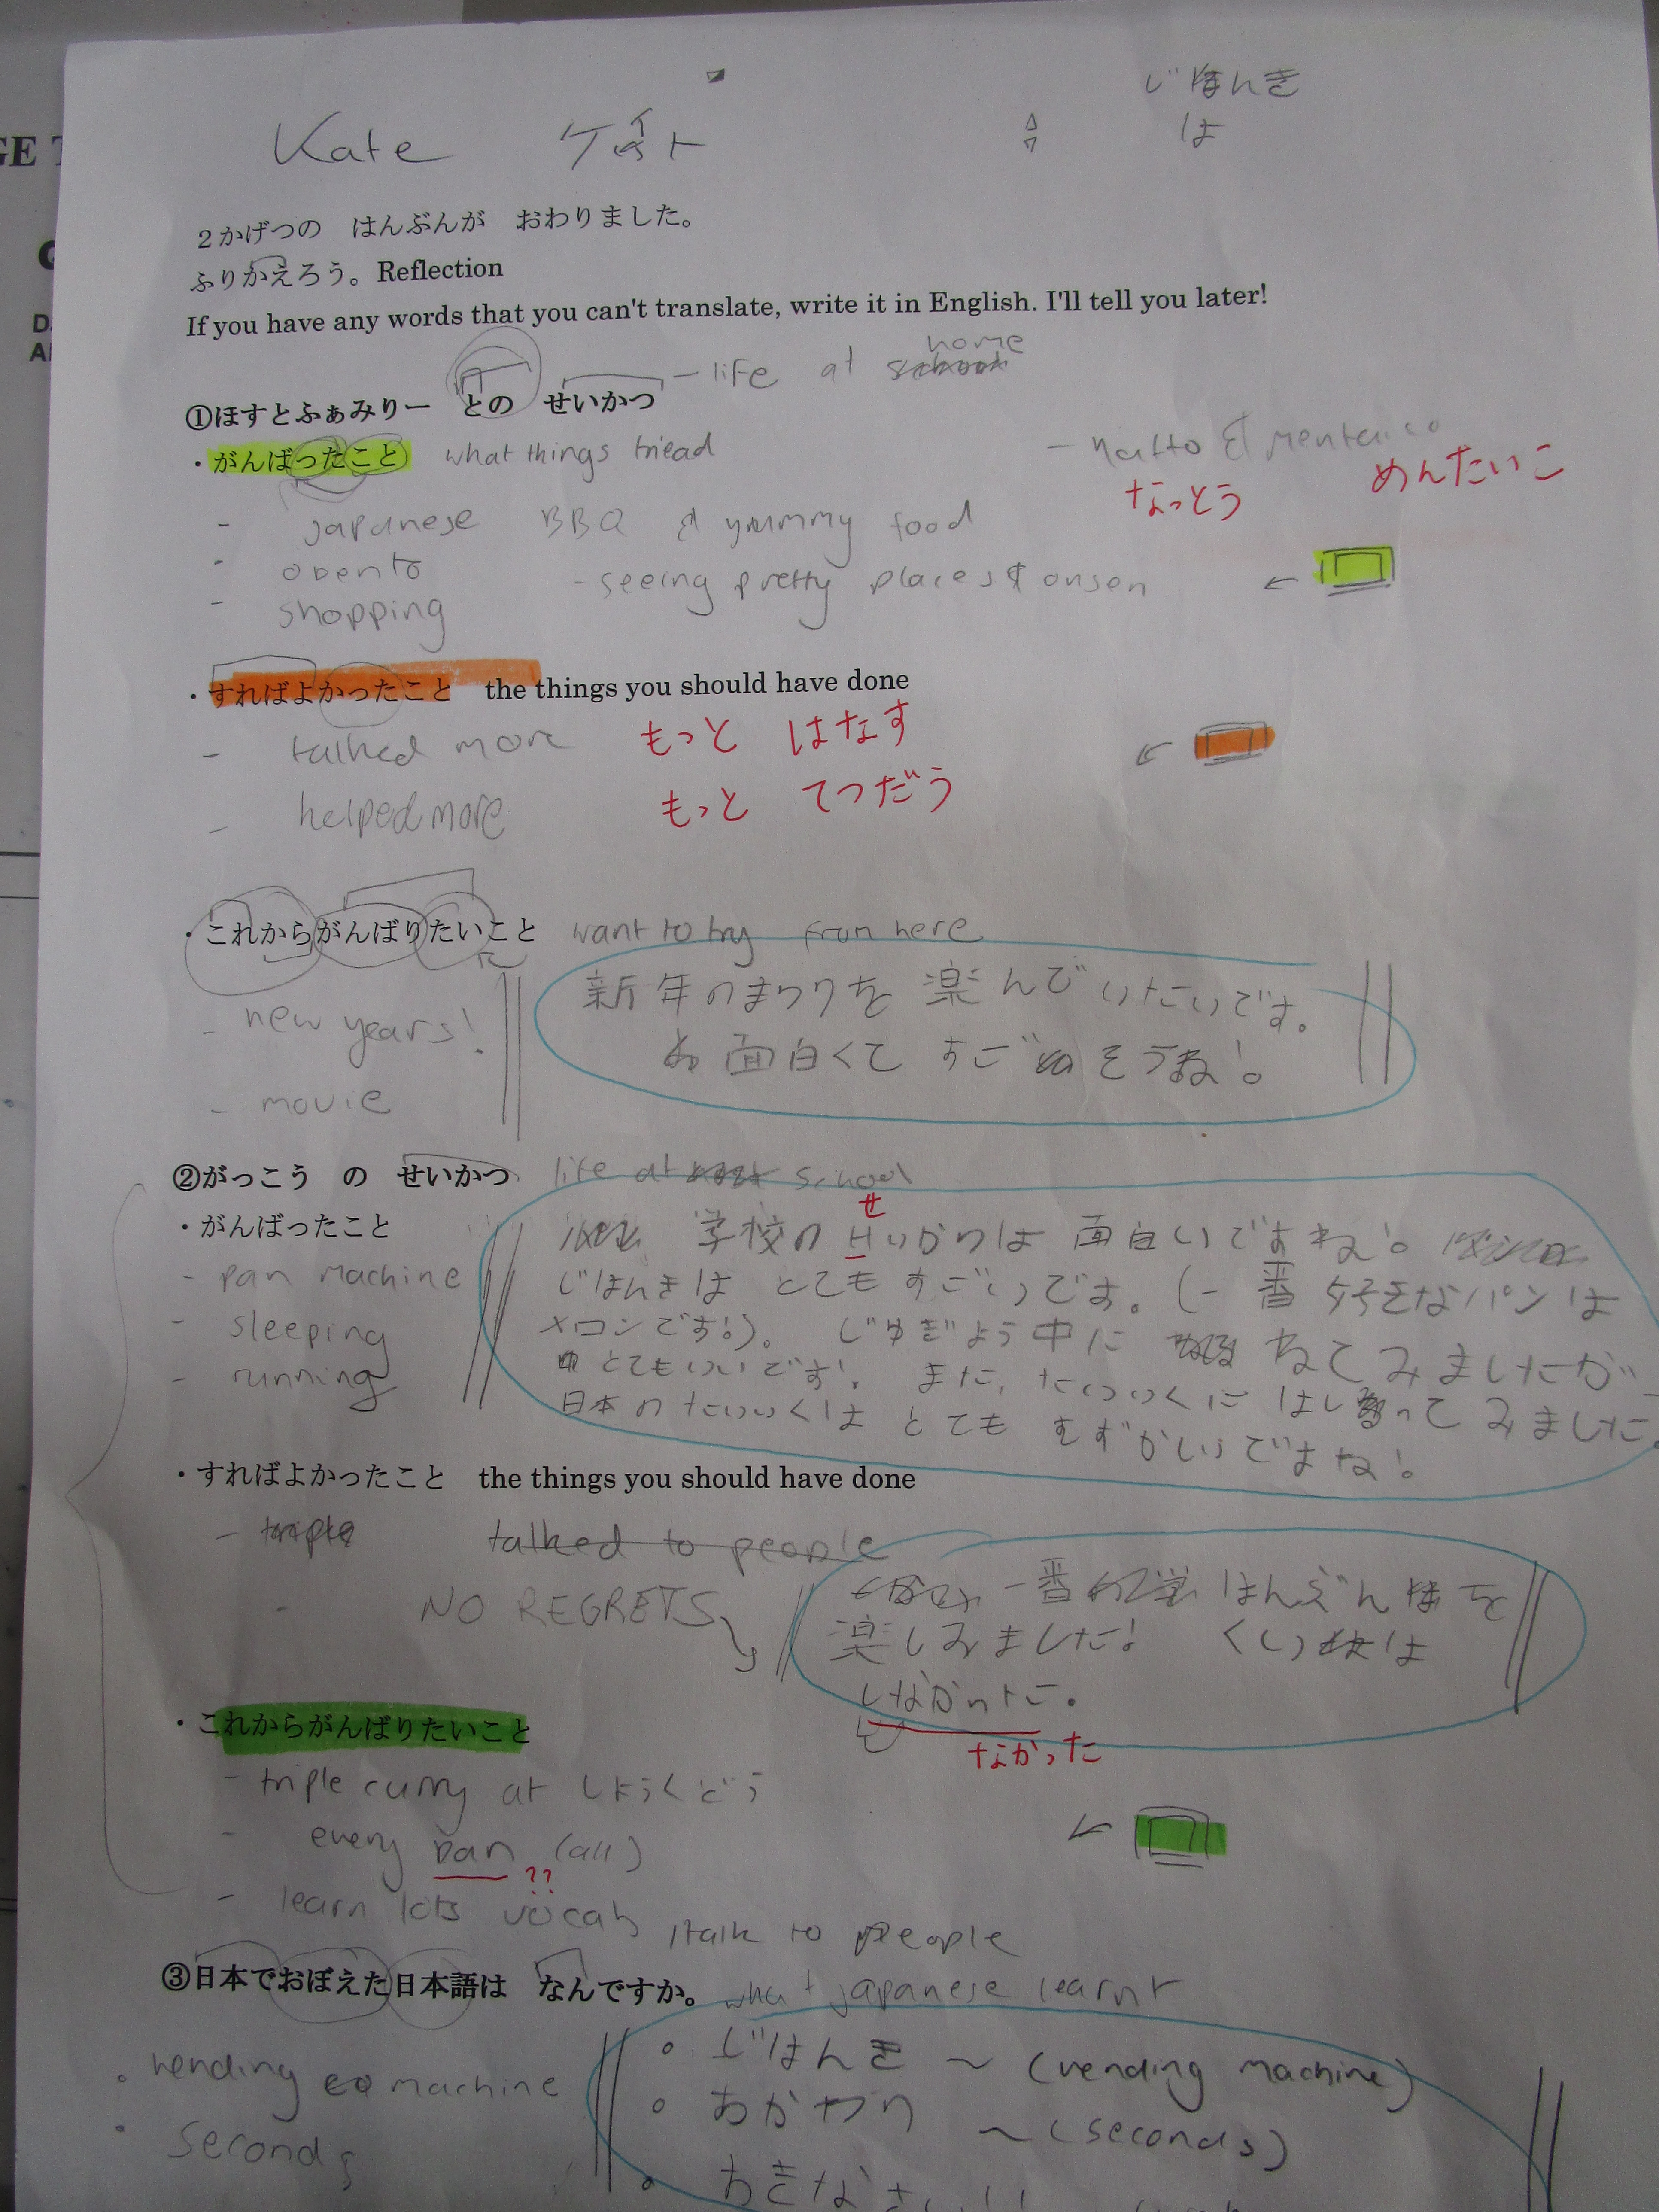 じはんき
は
Kate ケイト
２かげつの　はんぶんが　おわりました。
ふりかえろう。Reflection
If you have any words that you can't translate, write it in English. I'll tell you later!
①ほすとふぁみりー　との　せいかつ - life at home
・がんばったこと what things tried
- natto & mentaiko
なっとう めんたいこ
- japanese BBQ & yummy food
- obento
- seeing pretty places & onsen
- shopping
・すればよかったこと　the things you should have done
- talked more もっと はなす
- helped more もっと てつだう
・これからがんばりたいこと want to try from here
- new years!
新年のまつりを楽んでいたいです。
面白くて すごそうね!
- movie
②がっこう　の　せいかつ life at school
・がんばったこと
- pan machine
- sleeping
- running
せ
学校の せいかつは 面白いですね!
じはんきは とても すごいです。(一番 好きなパンは
メロンです!)。 じゅぎょう中に ねてみましたが
とてもいいです! また, たいいくに はしってみました
日本のたいいくは とても むずかしいですね!
・すればよかったこと　the things you should have done
- triple talked to people
NO REGRETS
一番 はんぶん を
楽しみました! くいは
しなかった。
なかった
・これからがんばりたいこと
- triple curry at しょうくどう
- every pan (all)
??
- learn lots vocab / talk to people
③日本でおぼえた日本語は　なんですか。 what japanese learnt
・vending machine
・seconds
・じはんき ~ (vending machine)
・おかわり ~ (seconds)